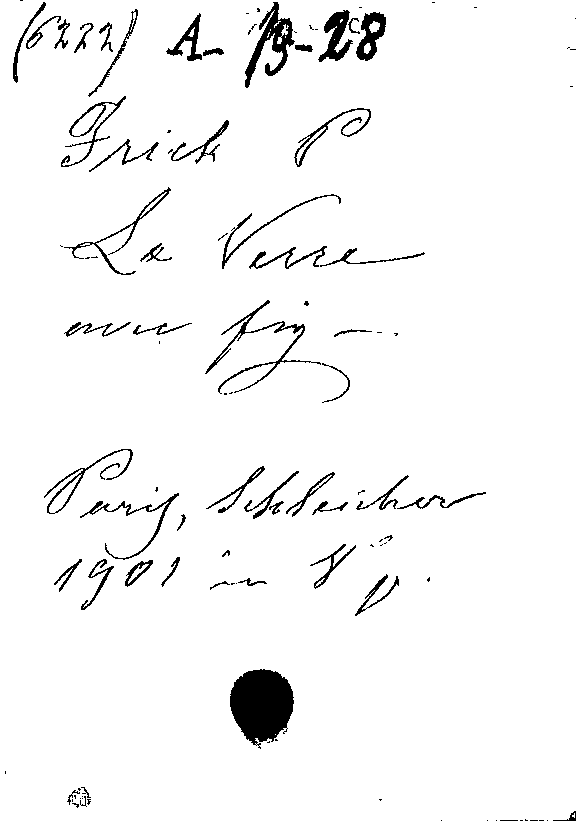 (6222) A- 19-28
Frick P
Le Verre
avec fig -.
Paris, Schleicher
1901 in 8° p.